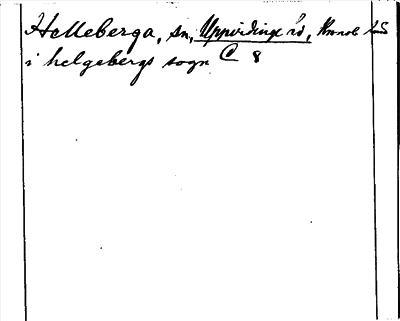 Helleberga, sn, Uppvidinge hd, Kronob län
i helgebergs sogn C 8